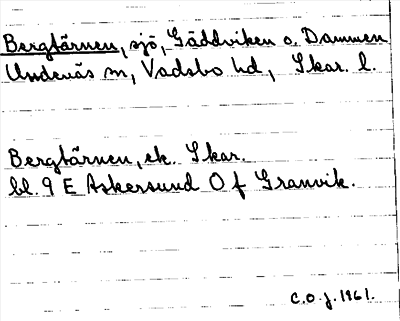 Bergtärnen, sjö, Gäddviken o. Dammen
Undenäs sn, Vadsbo hd, Skar. l.
Bergtärnen, ek. Skar.
bl. 9 E Askersund O f Granvik.
C.O.J. 1961.